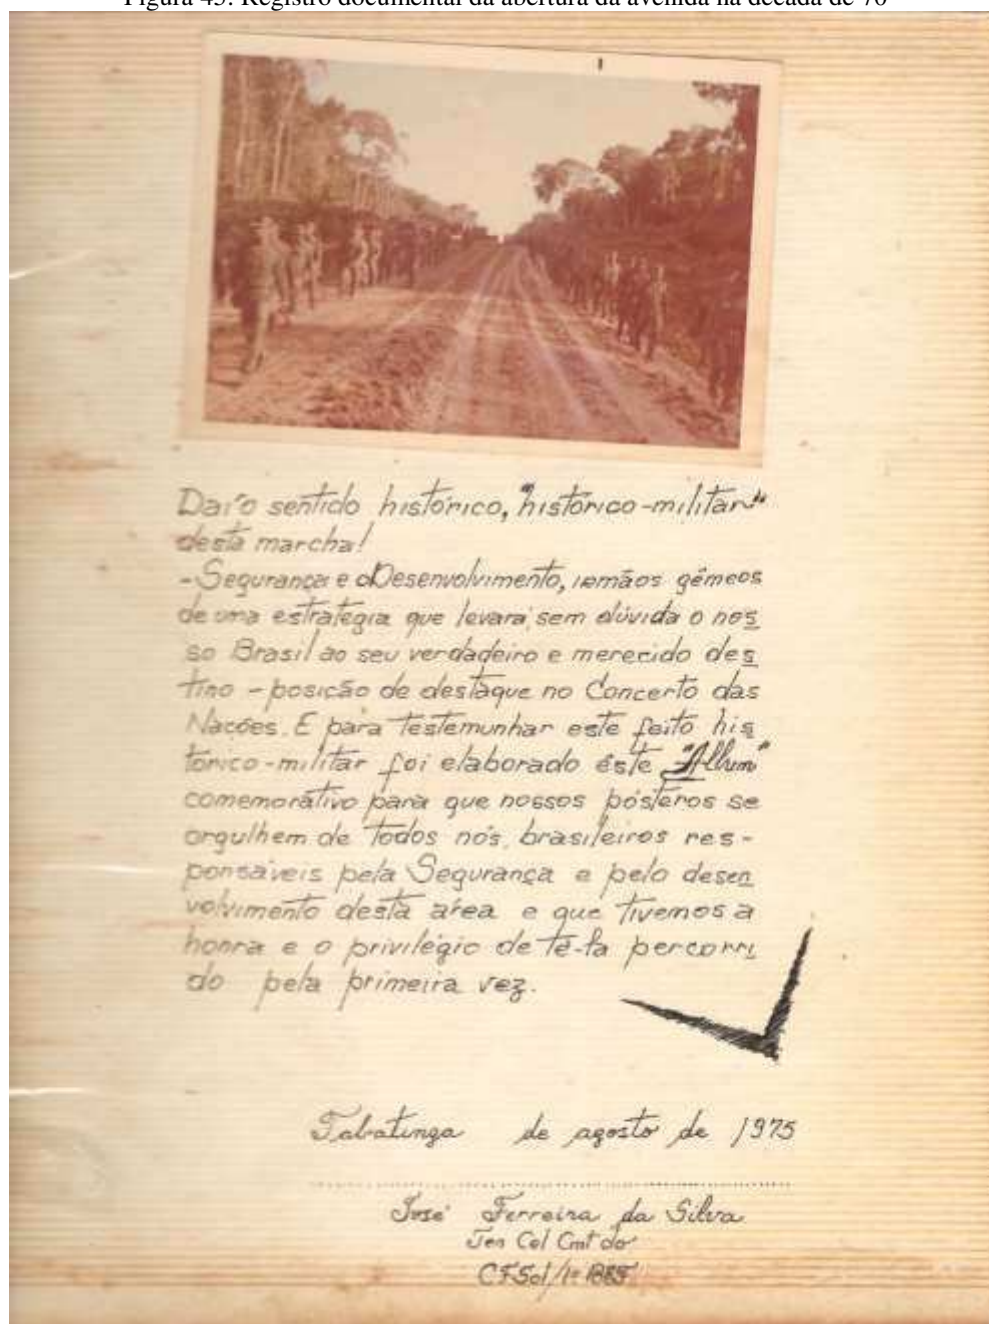 Figura 43: Registro documental da abertura da avenida na década de 70
Daí o sentido histórico, "histórico-militar"
desta marcha!
- Segurança e Desenvolvimento, irmãos gêmeos
de uma estratégia que levará, sem dúvida o nos
so Brasil ao seu verdadeiro e merecido des
tino - posição de destaque no Concerto das
Nações. E para testemunhar este feito his
tórico-militar foi elaborado éste "Album"
comemorativo para que nossos pósteros se
orgulhem de todos nós, brasileiros res-
ponsáveis pela Segurança e pelo desen
volvimento desta área e que tivemos a
honra e o privilégio de tê-la percorri
do pela primeira vez.
Tabatinga de agosto de 1975
José Ferreira da Silva
Ten Cel Cmt do
CFSol/1º